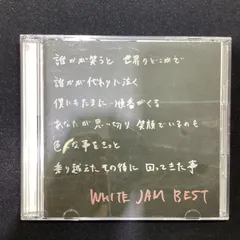 誰かが笑うと 世界のどこかで
誰かが代わりに泣く
僕にもたまに順番がくる
あなたが思っ切り 笑顔でいるのも
色んな事をきっと
乗り越えたその後に 回ってきた事
WHITE JAM BEST